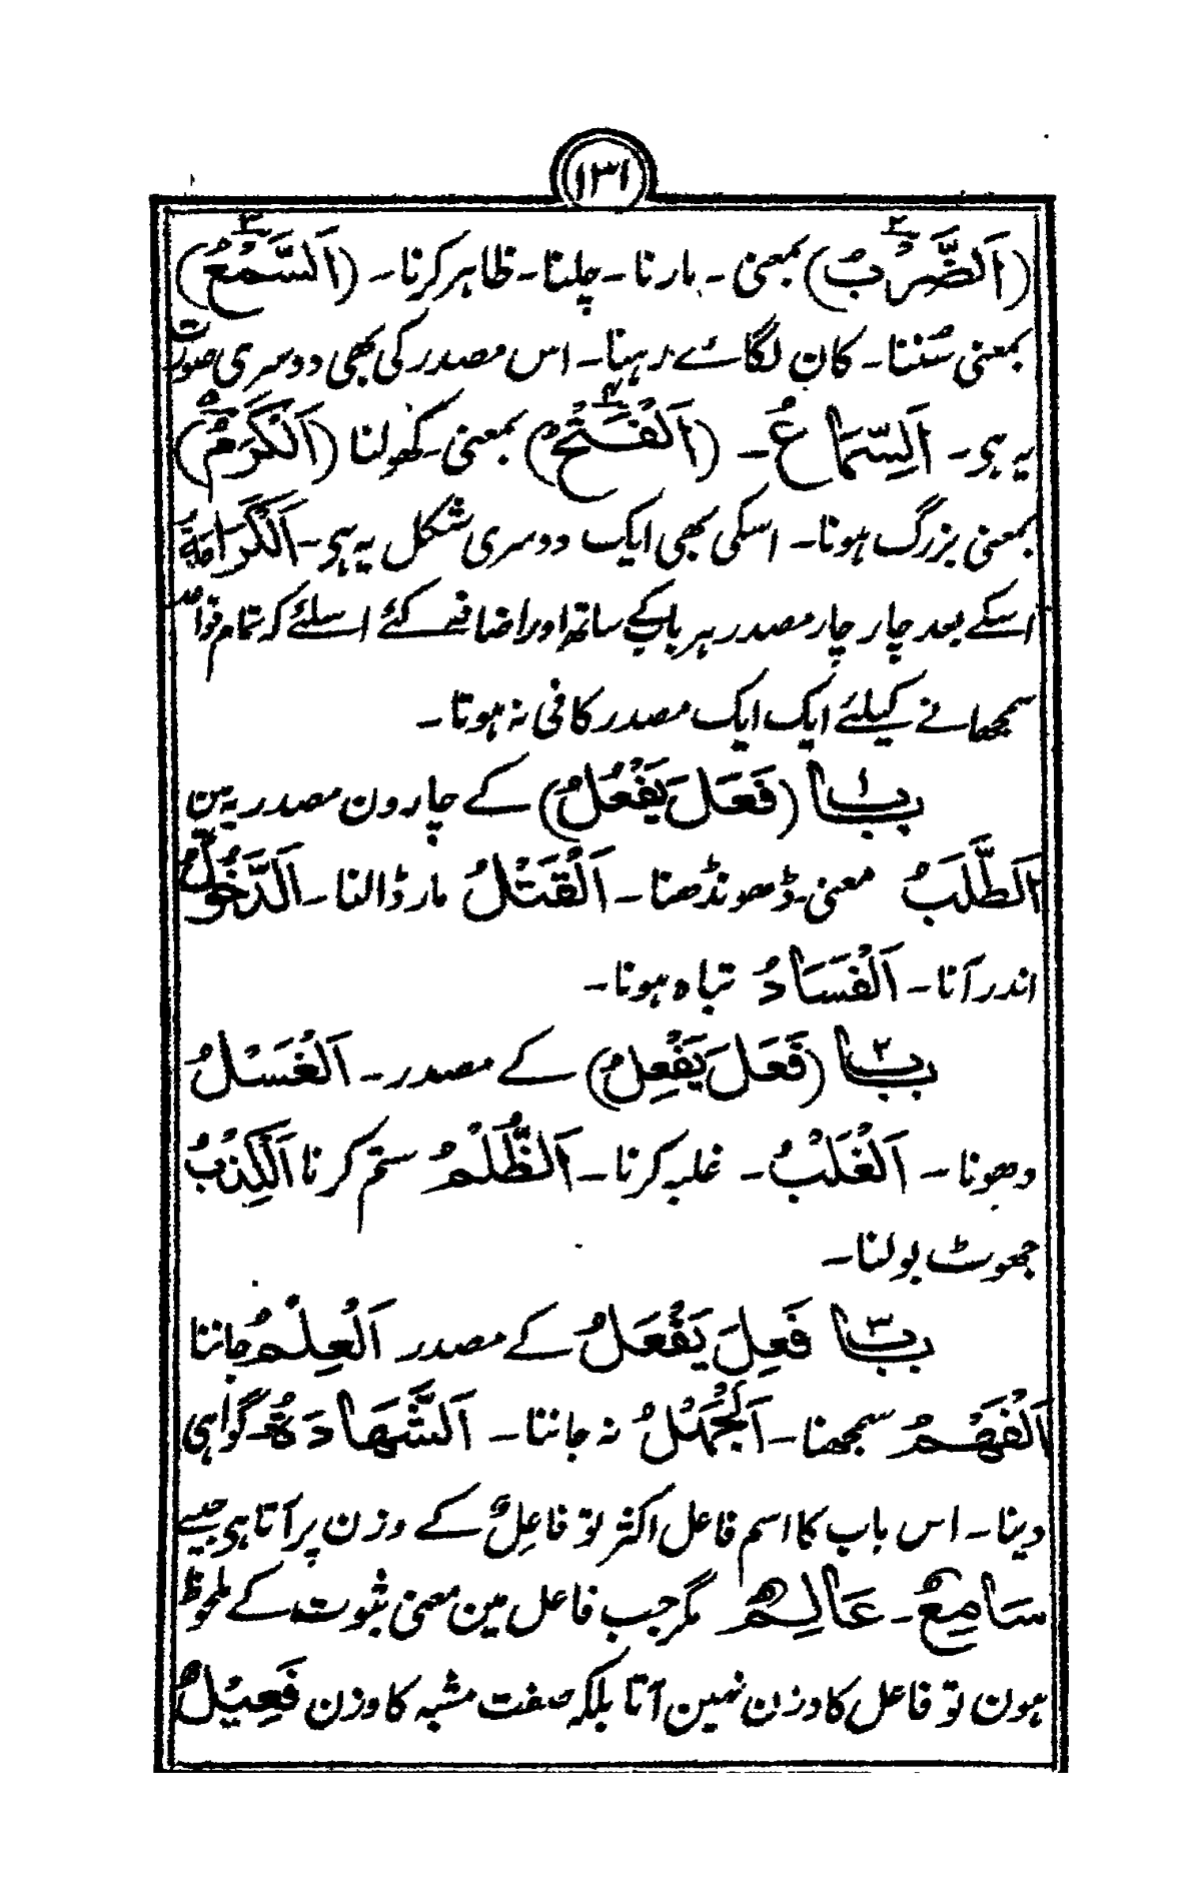 ۱۳۱
(اَلضَّرْبُ)۲ بمعنی۔ مارنا۔ چلنا۔ ظاہر کرنا۔ (اَلسَّمْعُ)۳
بمعنی سُننا۔ کان لگائے رہنا۔ اس مصدر کی بھی دوسری صورت
یہ ہی۔ اَلسِّمَاعُ۔ (اَلْفَتْحُ)۴ بمعنی۔ کھولنا (اَلْکَرَمُ)۵
بمعنی بزرگ ہونا۔ اسکی بھی ایک دوسری شکل یہ ہی۔ اَلْکَرَامَةُ
اسکے بعد چار چار مصدر ہر باب کے ساتھ اور اضافے کئے اسلئے کہ تمام قواعد
سمجھانے کیلئے ایک ایک مصدر کافی نہ ہوتا۔
باب۱ (فَعَلَ یَفْعُلُ) کے چارون مصدر یہ ہین
اَلطَّلَبُ معنی۔ ڈھونڈھنا۔ اَلْقَتْلُ مار ڈالنا۔ اَلدُّخُوْلُ
اندر آنا۔ اَلْفَسَادُ تباہ ہونا۔
باب۲ (فَعَلَ یَفْعِلُ) کے مصدر۔ اَلْغَسْلُ
دھونا۔ اَلْغَلْبُ۔ غلبہ کرنا۔ اَلظُّلْمُ ستم کرنا اَلْکِذْبُ
جھوٹ بولنا۔
باب۳ فَعِلَ یَفْعَلُ کے مصدر اَلْعِلْمُ جاننا
اَلْفَهْمُ سمجھنا۔ اَلْجَهْلُ نہ جاننا۔ اَلشَّهَادَةُ۔ گواہی
دینا۔ اس باب کا اسم فاعل اکثر تو فاعِلٌ کے وزن پر آتا ہی جیسے
سَامِعٌ۔ عَالِمٌ مگر جب فاعل مین معنی ثبوت کے ملحوظ
ہون تو فاعل کا وزن نہین آتا بلکہ صفت مشبہ کا وزن فَعِیْلٌ